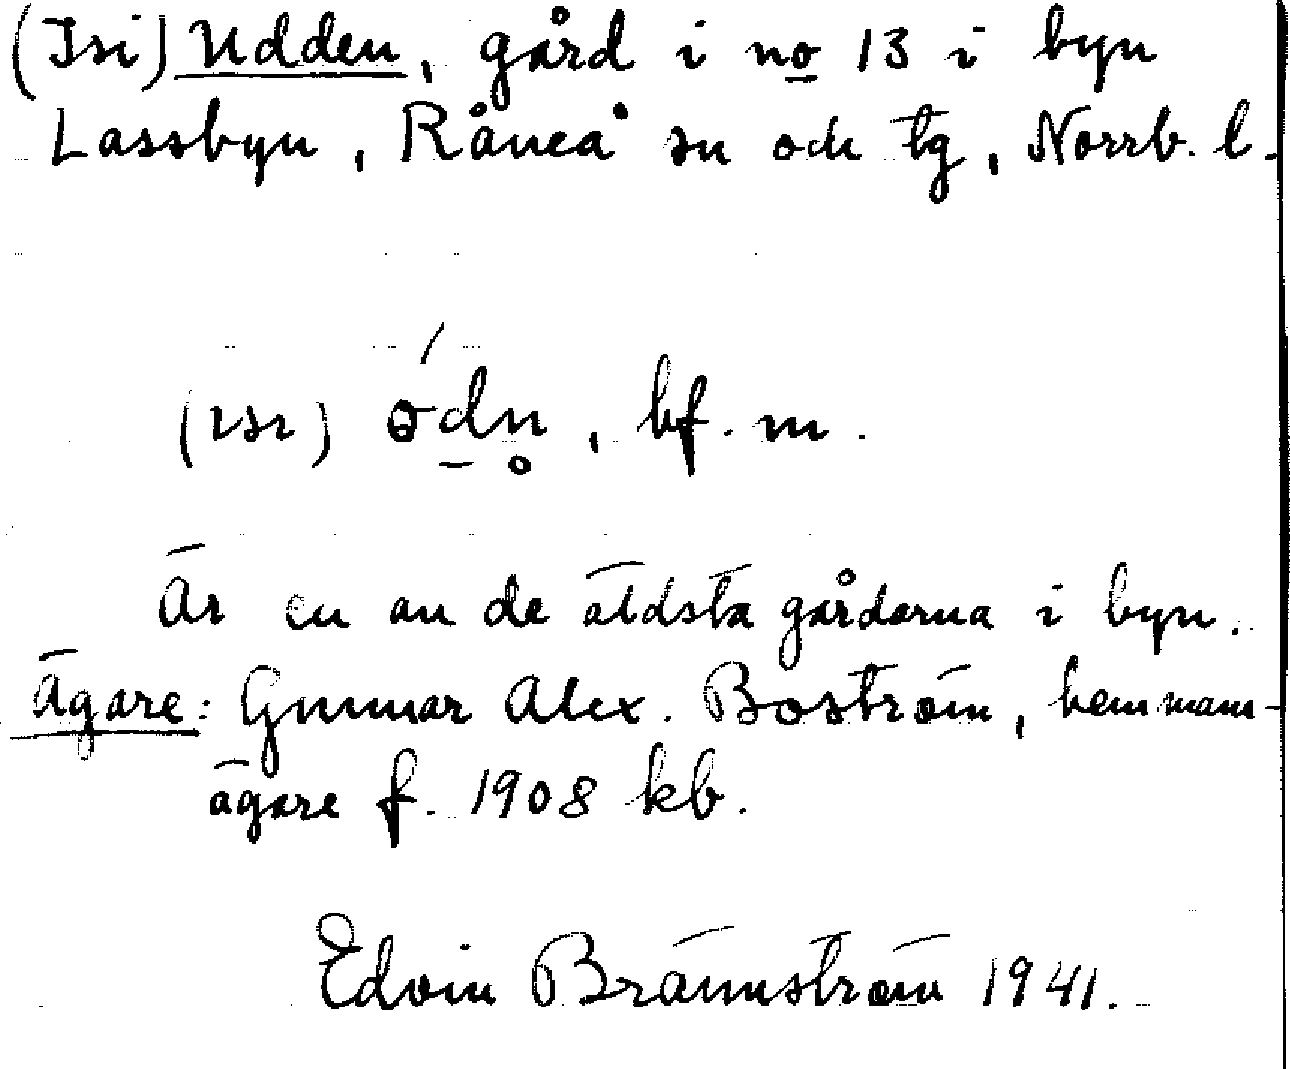 (Isi) Udden, gård i no 13 i byn
Lassbyn, Råneå sn och tg, Norrb. l.
(ɪsɪ) ɵ́dn̥, bf. m.
Är en av de äldsta gårdarna i byn.
Ägare: Gunnar Alex. Boström, hemmans-
ägare f. 1908 kb.
Edvin Brännström 1941.